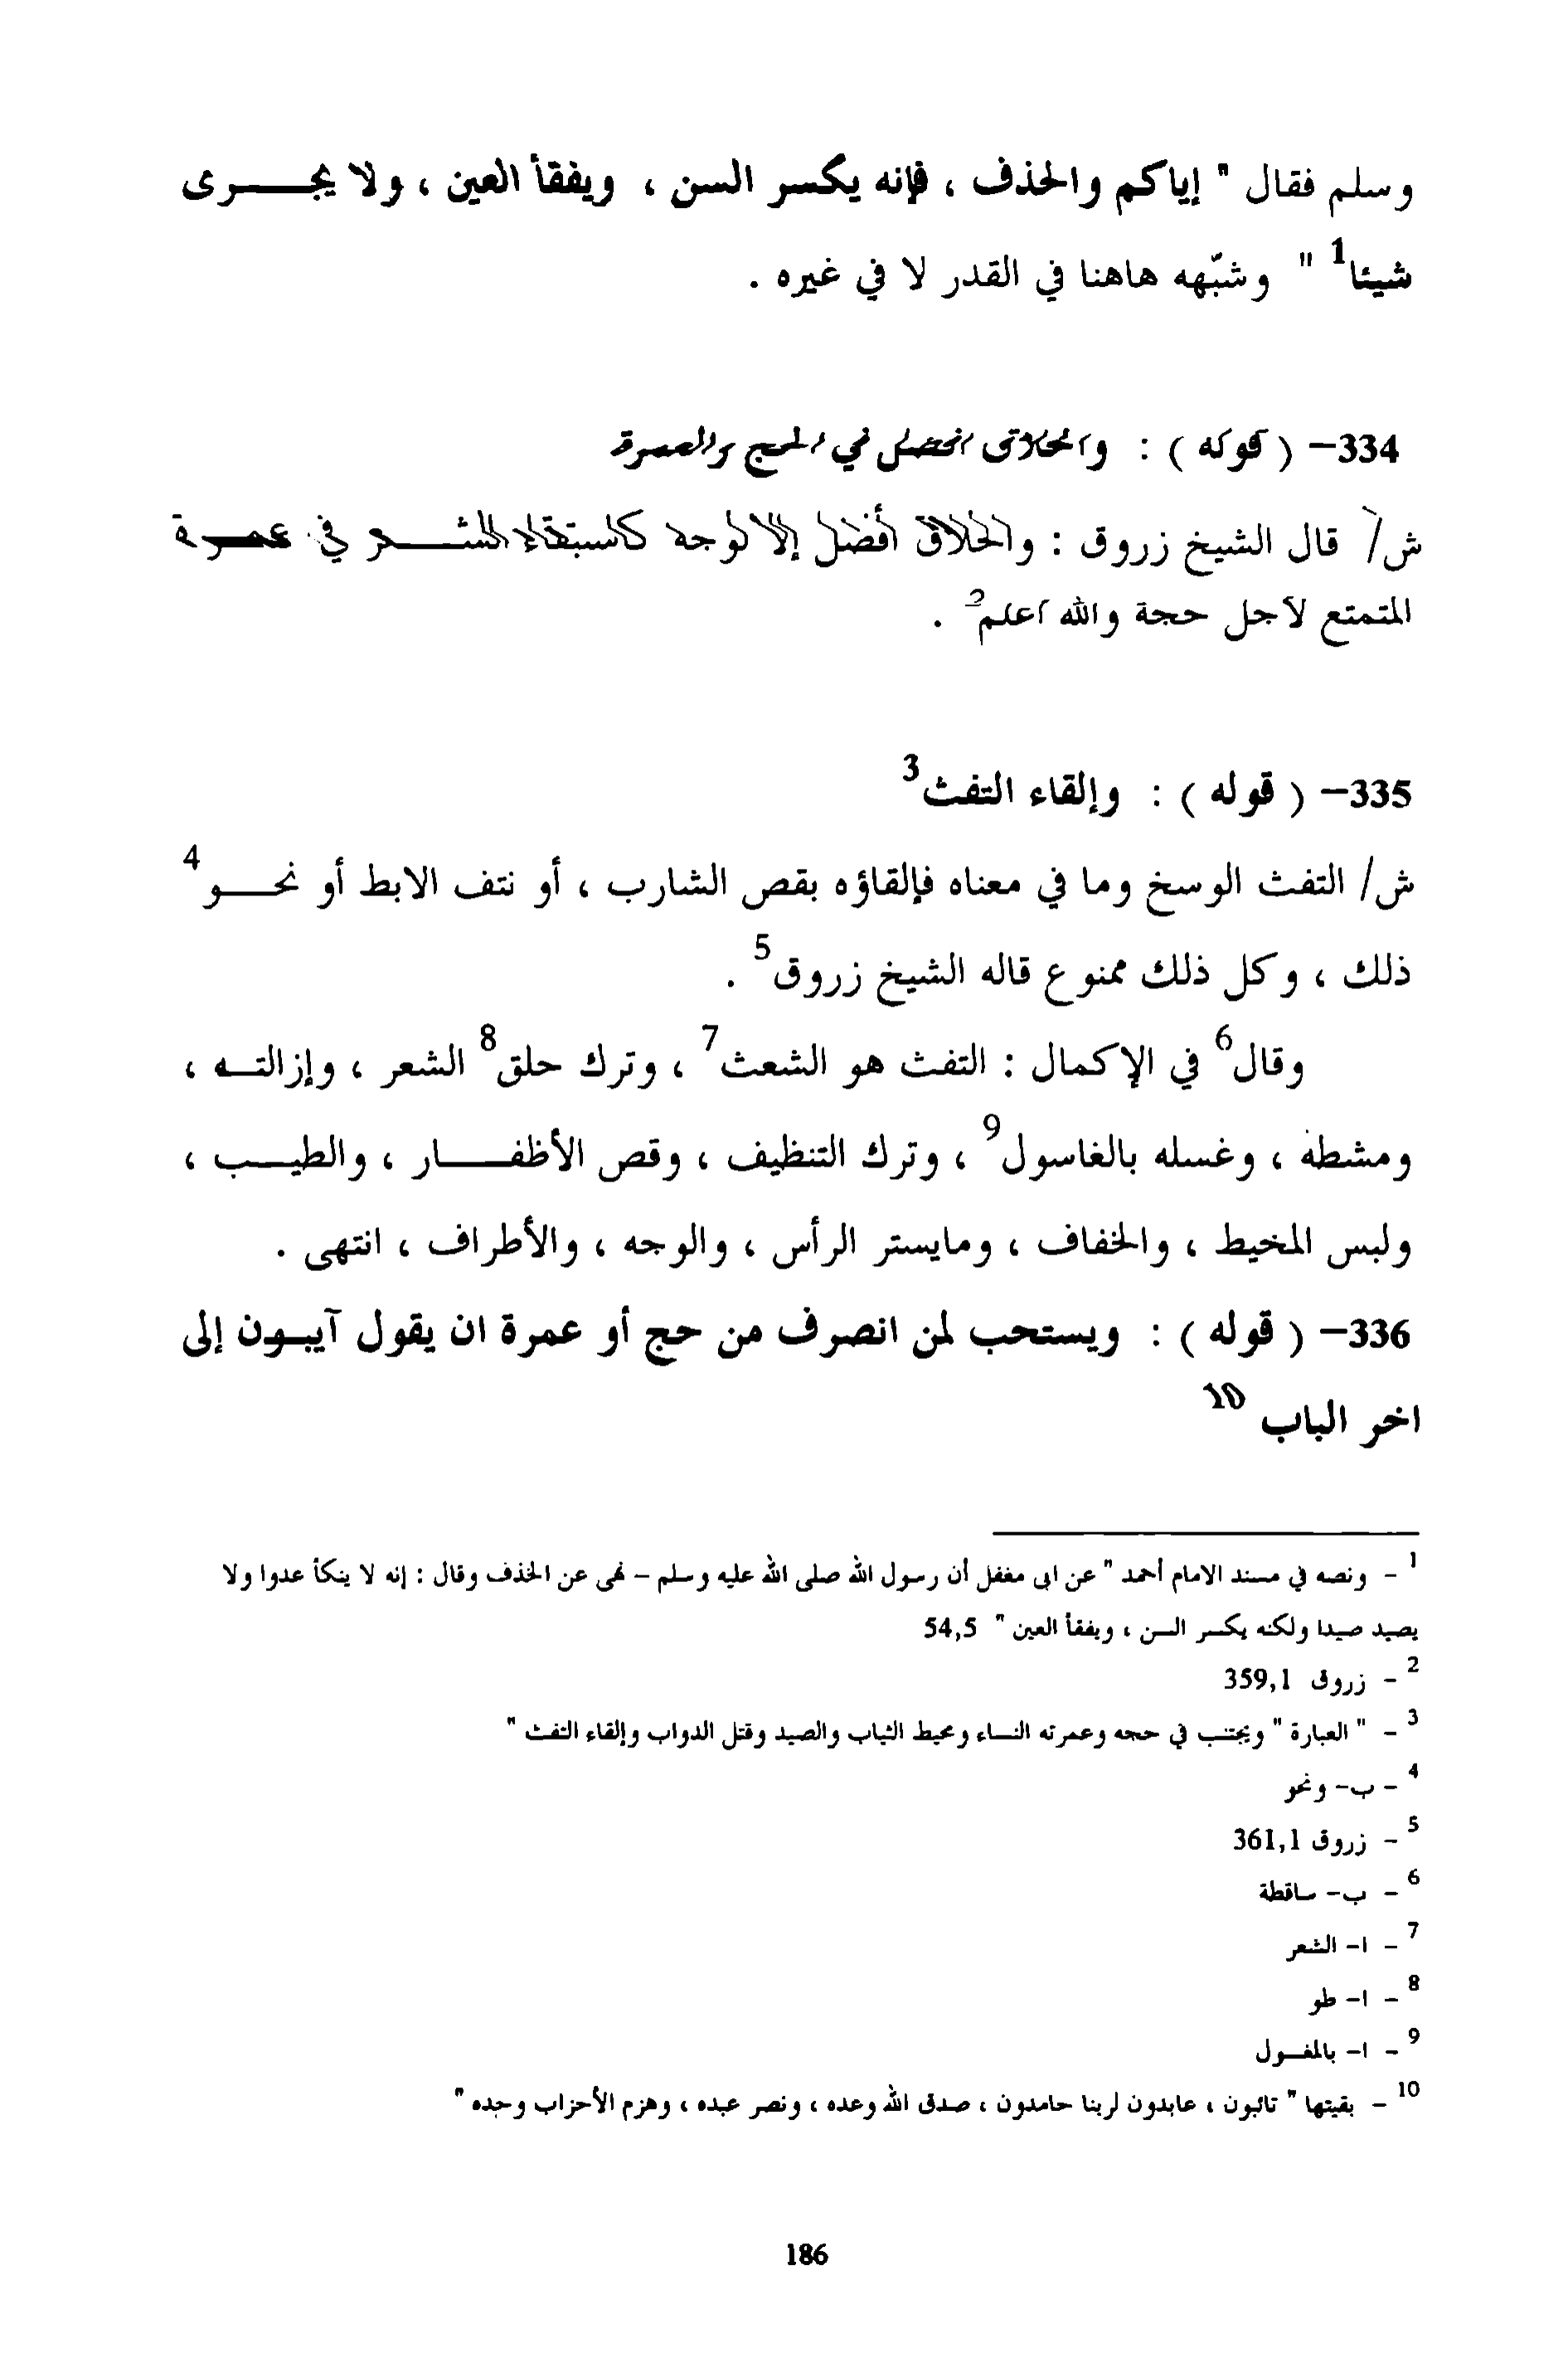 وسلم فقال " إياكم والخذف ، فإنه يكسر السن ، ويفقأ العين ، ولا يجرى
شيئا1 " وشبّهه هاهنا في القدر لا في غيره .
334– ( قوله ) : والحلاق افضل في الحج والعمرة
ش/ قال الشيخ زروق : والحلاق أفضل إلا لوجه كاستبقاء الشعر في عمرة
المتمتع لأجل حجة والله اعلم2 .
335– ( قوله ) : وإلقاء التفث3
ش/ التفث الوسخ وما في معناه فإلقاؤه بقص الشارب ، أو نتف الابط أو نحو4
ذلك ، وكل ذلك ممنوع قاله الشيخ زروق5 .
وقال6 في الإكمال : التفث هو الشعث7 ، وترك حلق8 الشعر ، وإزالته ،
ومشطه ، وغسله بالغاسول9 ، وترك التنظيف ، وقص الأظفار ، والطيب ،
ولبس المخيط ، والخفاف ، ومايستر الرأس ، والوجه ، والأطراف ، انتهى .
336– ( قوله ) : ويستحب لمن انصرف من حج أو عمرة ان يقول آيبون إلى
اخر الباب 10
1 - ونصه في مسند الامام أحمد " عن ابى مغفل أن رسول الله صلى الله عليه وسلم – نهى عن الخذف وقال : إنه لا ينكأ عدوا ولا
يصيد صيدا ولكنه يكسر السن ، ويفقأ العين " 54,5
2 - زروق 359,1
3 - " العبارة " ويجتنب في حجه وعمرته النساء ومخيط الثياب والصيد وقتل الدواب وإلقاء التفث "
4 - ب- ونحو
5 - زروق 361,1
6 - ب- ساقطة
7 - ا- الشعر
8 - ا- طو
9 - ا- بالمغسول
10 - بقيتها " تائبون ، عابدون لربنا حامدون ، صدق الله وعده ، ونصر عبده ، وهزم الأحزاب وحده "
186